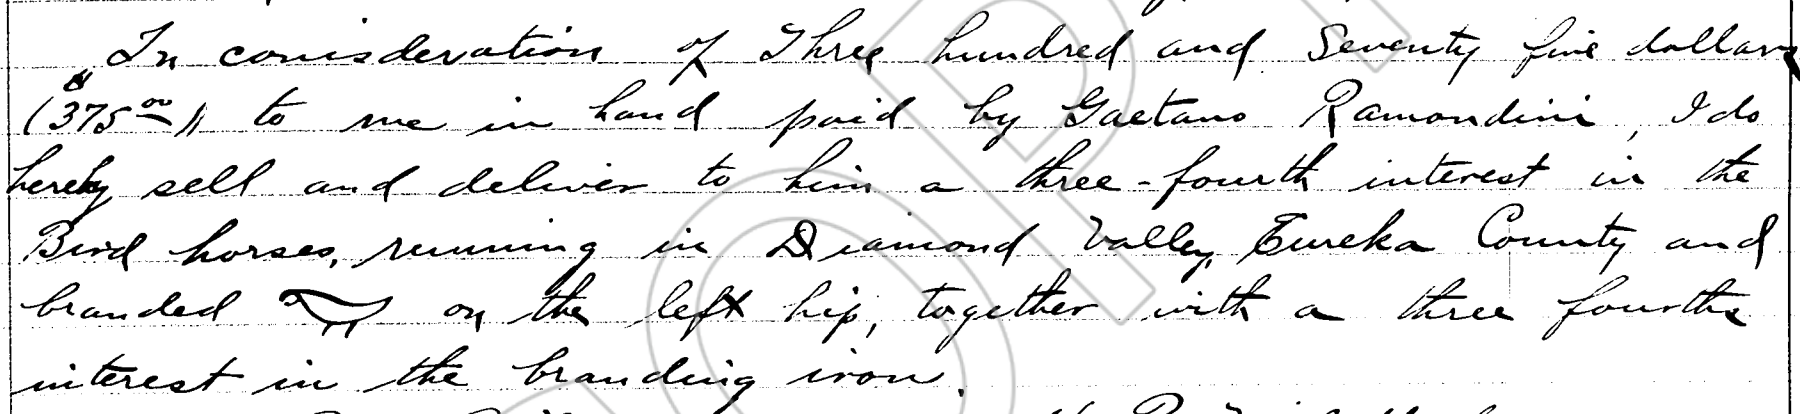 In conisderation of Three hundred and Seventy five dollars
($375.00) to me in hand paid by Gaetano Ramondini, I do
hereby sell and deliver to him a three-fourth interest in the
Bird horses, running in Diamond Valley, Eureka County and
branded on the left hip, together with a three fourths
interest in the branding iron.